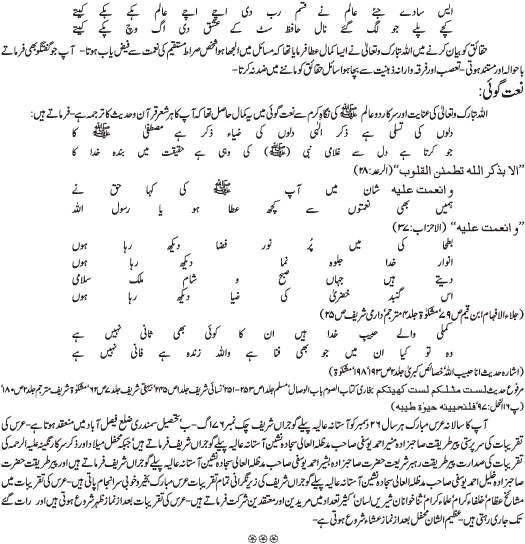 ایس سادے جئے عالم نے قسم رب دی اچے اچے عالم بکے بکے کیتے
کچے پلے جو لگ گئے نال حافظ سٹ کے عشق دی اگ وچ پکے کیتے
حقائق کو بیان کرنے میں اللہ تبارک وتعالیٰ نے ایسا کمال عطا فرمایا تھا کہ مسائل میں الجھا ہوا شخص صراط مستقیم کی نعمت سے فیض یاب ہوتا۔ آپ جو گفتگو بھی فرماتے
باحوالہ اور مستند ہوتی۔ تعصب اور فرقہ وارانہ ذہنیت سے بچا ہوا سائل حقائق کو ماننے میں ضد نہ کرتا۔
نعت گوئی:
اللہ تبارک وتعالیٰ کی عنایت اور سرکار دو عالم ﷺ کی نگاہِ کرم سے نعت گوئی میں یہ کمال حاصل تھا کہ آپ کا ہر شعر قرآن و حدیث کا ترجمہ ہے۔ فرماتے ہیں:
دلوں کی تسلی ہے ذکر الٰہی دلوں کی ضیاء ذکر ہے مصطفیٰ ﷺ کا
جو کرتا ہے دل سے غلامی نبی (ﷺ) کی وہی ہے حقیقت میں بندہ خدا کا
”الا بذکر اللہ تطمئن القلوب“ (الرعد:۲۸)
وانعمت علیہ شان میں آپ ﷺ کی کہا حق نے
ہمیں بھی نعمتوں سے کچھ عطا ہو یا رسول اللہ
”وانعمت علیہ“ (الاحزاب:۳۷)
بطحا کی میں پُر نور فضا دیکھ رہا ہوں
انوار خدا جلوہ نما دیکھ رہا ہوں
دیتے ہیں جہاں صبح و شام ملک سلامی
اس گنبد خضریٰ کی ضیا دیکھ رہا ہوں
(جلاء الافہام ابن قیم ص۷۹، مشکوٰۃ جلد۳ مترجم دارمی شریف ص۲۵)
کملی والے حبیب خدا ہیں ان کا کوئی بھی ثانی نہیں ہے
وہ تو کیا ان میں جو بھی فنا ہے واللہ زندہ ہے فانی نہیں ہے
(اشارہ حدیث انا حبیب اللہ خصائص کبریٰ جلد۲ ص۱۹۳، ۱۹۸ مشکوٰۃ)
مرفوع حدیث لست مثلکم لست کھیئتکم بخاری کتاب الصوم باب الوصال، مسلم جلد۱ ص۲۵۳-۲۵۱، نسائی شریف جلد۱ ص۲۳۵، بیہقی شریف جلد۷ ص۶۲، مشکوٰۃ شریف مترجم جلد۲ ص۱۸۰،
(پ۱۴ النحل:۹۷) فلنحیینہ حیوۃ طیبہ)
آپ کا سالانہ عرس مبارک ہر سال ۲۶ دسمبر کو آستانہ عالیہ پیلے گوجراں شریف چک نمبر ۱۷۶گ۔ب، تحصیل سمندری ضلع فیصل آباد میں منعقد ہوتا ہے۔ عرس کی
تقریبات کی سرپرستی پیر طریقت صاحبزادہ منیر احمد یوسفی صاحب مدظلہ العالی سجادہ نشین آستانہ عالیہ پیلے گوجراں شریف فرماتے ہیں جبکہ محفل میلاد اور ذکر سرکار نگینہ علیہ الرحمہ کی
تقریبات کی صدارت پیر طریقت رہبر شریعت حضرت صاحبزادہ بشیر احمد یوسفی صاحب مدظلہ العالی سجادہ نشین آستانہ عالیہ پیلے گوجراں شریف فرماتے ہیں اور پیر طریقت حضرت
صاحبزادہ خلیل احمد یوسفی صاحب مدظلہ العالی سجادہ نشین آستانہ عالیہ پیلے گوجراں شریف کی زیر نگرانی تمام تقریبات عرس مبارک بخیر و خوبی سرانجام پاتی ہیں۔ عرس کی تقریبات میں
مشائخ عظام، خلفاء کرام، علماء کرام، ثناء خوانان شیریں لساں، کثیر تعداد میں مریدین اور معتقدین شرکت فرماتے ہیں۔ عرس کی تقریبات بعد از نماز ظہر شروع ہوتی ہیں اور رات گئے
تک جاری رہتی ہیں۔ عظیم الشان محفل بعد از نماز عشاء شروع ہوتی ہے۔